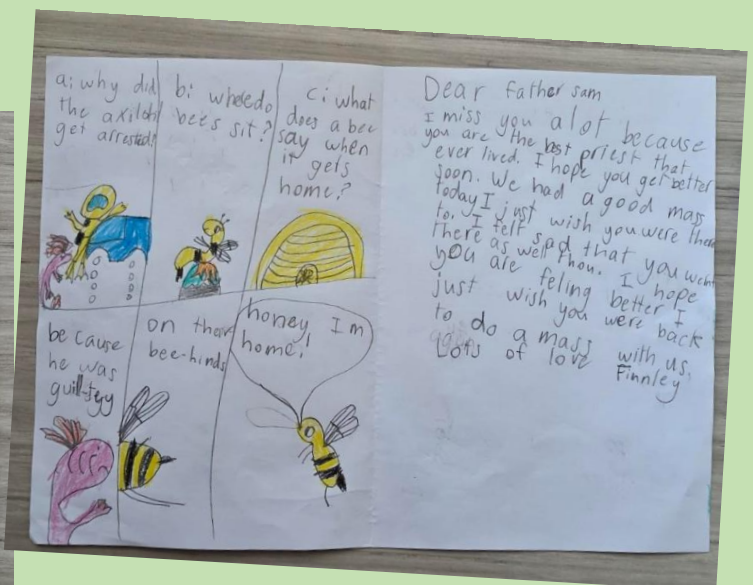 a: why did
the axilotl
get arrested!
b: where do
bees sit?
c: what
does a bee
say when
it gets
home?
be cause
he was
guill-tgy
on thar
bee-hinds
honey, I m
home!
Dear Father sam
I miss you a lot because
you are the best priest that
ever lived. I hope you get better
soon. We had a good mass
today I just wish you were there
to. I felt sad that you went
there as well thou. I hope
you are feling better I
just wish you were back
to do a mass with us.
Lots of love
Finnley